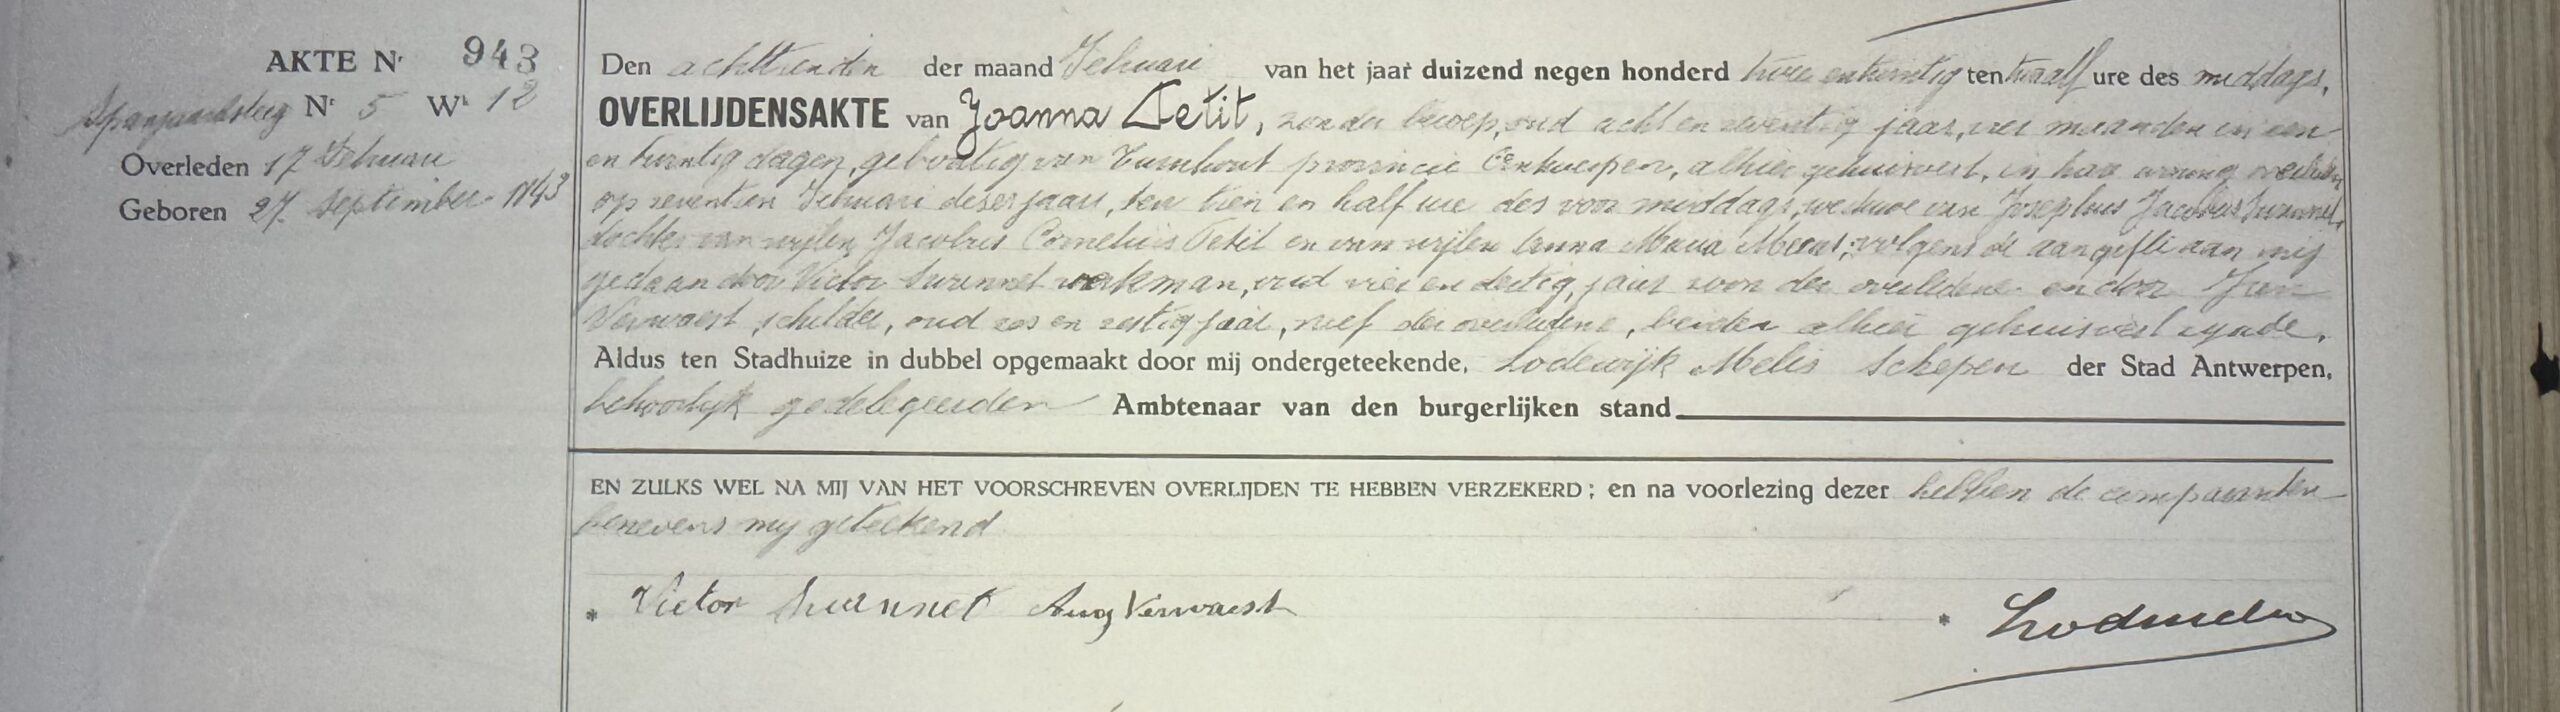 AKTE Nr 943
Spanjaardsteeg Nr 5 Wk 12
Overleden 17 Februari
Geboren 27 September 1843
Den achttienden der maand Februari van het jaar duizend negen honderd twee en twintig ten twaalf ure des middags,
OVERLIJDENSAKTE van Joanna Petit, zonder beroep, oud acht en zeventig jaar, vier maanden en een
en twintig dagen, geboortig van Turnhout provincie Antwerpen, alhier gehuisvest, in haar woning overleden
op zeventien Februari dezer jaars, ten tien en half ure des voormiddags, weduwe van Josephus Jacobus
dochter van wijlen Jacobus Cornelius Petit en van wijlen Anna Maria volgens de aangifte aan mij
gedaan door Victor werkman, oud vier en dertig jaar zoon der overledene en door
Verwaest, schilder, oud zes en zestig jaar, neef der overledene, beiden alhier gehuisvest zynde.
Aldus ten Stadhuize in dubbel opgemaakt door mij ondergeteekende, Lodewijk Melis Schepen der Stad Antwerpen,
behoorlijk gedelegeerden Ambtenaar van den burgerlijken stand
EN ZULKS WEL NA MIJ VAN HET VOORSCHREVEN OVERLIJDEN TE HEBBEN VERZEKERD; en na voorlezing dezer hebben de comparanten
benevens my geteekend
* Victor Aug Verwaest *